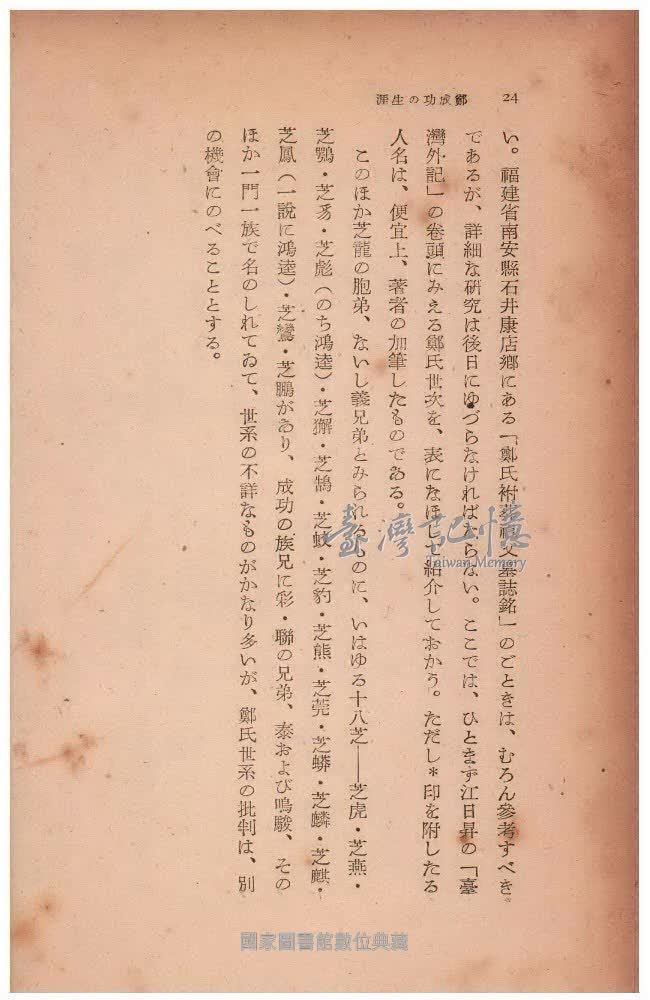 24　鄭成功の生涯
い。福建省南安縣石井康店鄉にある「鄭氏祔葬祖父墓誌銘」のごときは、むろん參考すべき
であるが、詳細な硏究は後日にゆづらなければならない。ここでは、ひとまづ江日昇の「臺
灣外記」の卷頭にみえる鄭氏世次を、表になほして紹介しておかう。ただし＊印を附したる
人名は、便宜上、著者の加筆したものである。
このほか芝龍の胞弟、ないし義兄弟とみられるものに、いはゆる十八芝——芝虎・芝燕・
芝鶚・芝豸・芝彪（のち鴻逵）・芝獬・芝鵠・芝蛟・芝豹・芝熊・芝莞・芝蟒・芝麟・芝麒・
芝鳳（一說に鴻逵）・芝鸞・芝鵬があり、成功の族兄に彩・聯の兄弟、泰および鳴駿、その
ほか一門一族で名のしれてゐて、世系の不詳なものがかなり多いが、鄭氏世系の批判は、別
の機會にのべることとする。
臺灣記憶
Taiwan Memory
國家圖書館數位典藏